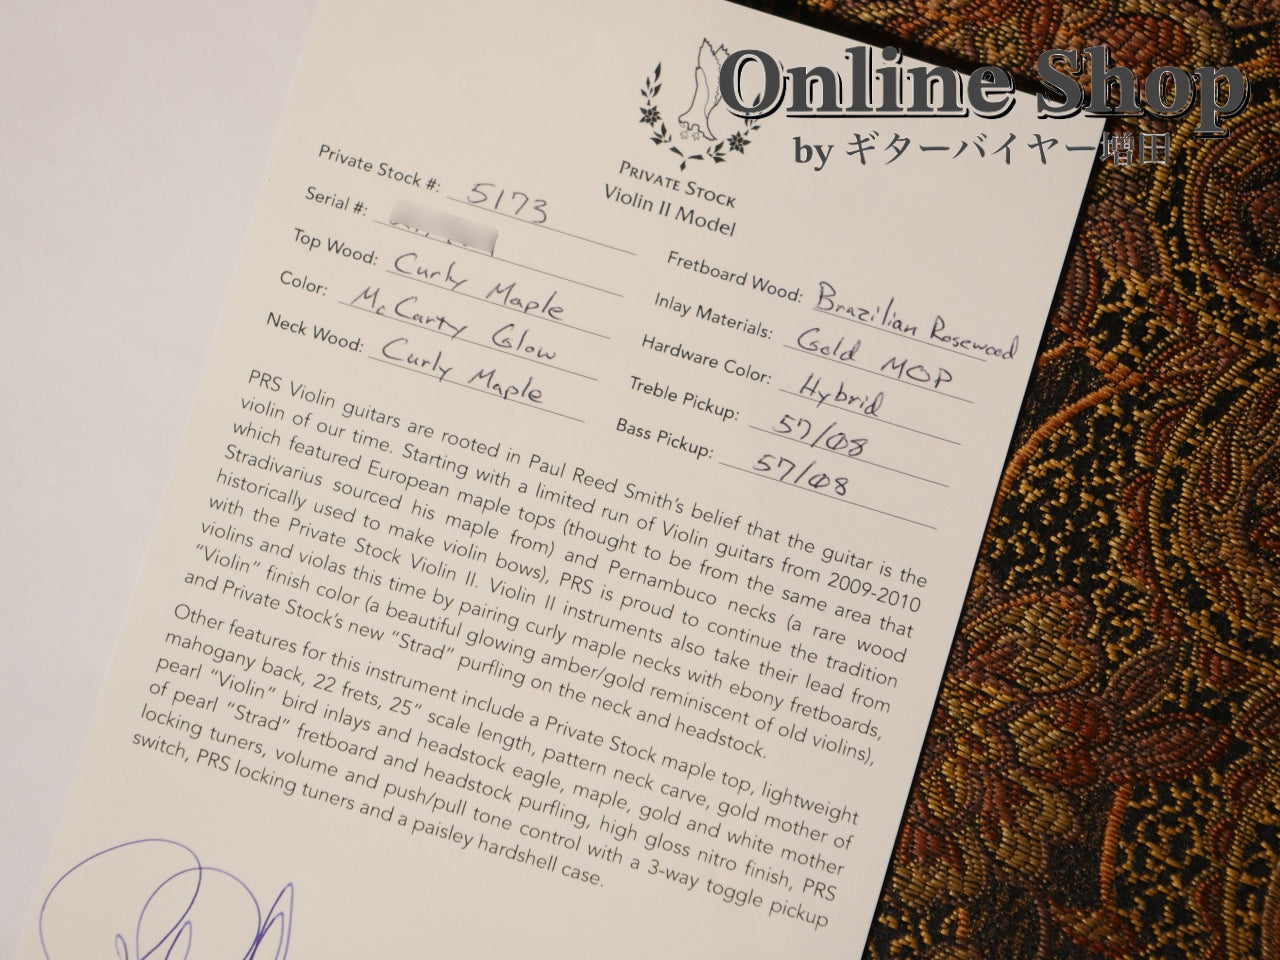 Online Shop
by ギターバイヤー増田
PRIVATE STOCK
Violin II Model
Private Stock #: 5173
Serial #:
Top Wood: Curly Maple
Color: McCarty Glow
Neck Wood: Curly Maple
Fretboard Wood: Brazilian Rosewood
Inlay Materials: Gold MOP
Hardware Color: Hybrid
Treble Pickup: 57/08
Bass Pickup: 57/08
PRS Violin guitars are rooted in Paul Reed Smith's belief that the guitar is the
violin of our time. Starting with a limited run of Violin guitars from 2009-2010
which featured European maple tops (thought to be from the same area that
Stradivarius sourced his maple from) and Pernambuco necks (a rare wood
historically used to make violin bows), PRS is proud to continue the tradition
with the Private Stock Violin II. Violin II instruments also take their lead from
violins and violas this time by pairing curly maple necks with ebony fretboards,
"Violin" finish color (a beautiful glowing amber/gold reminiscent of old violins),
and Private Stock's new "Strad" purfling on the neck and headstock.
Other features for this instrument include a Private Stock maple top, lightweight
mahogany back, 22 frets, 25" scale length, pattern neck carve, gold mother of
pearl "Violin" bird inlays and headstock eagle, maple, gold and white mother
of pearl "Strad" fretboard and headstock purfling, high gloss nitro finish, PRS
locking tuners, volume and push/pull tone control with a 3-way toggle pickup
switch, PRS locking tuners and a paisley hardshell case.